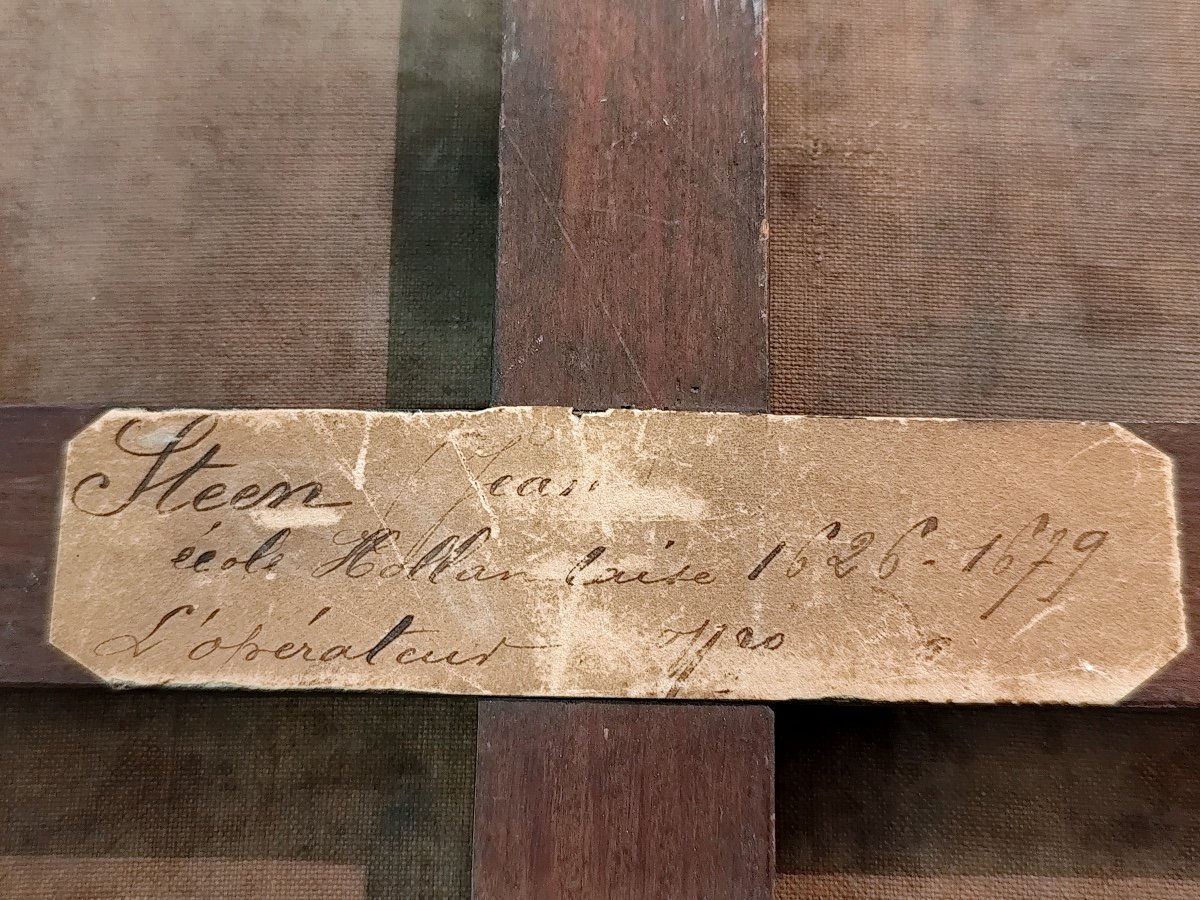 Steen Jean
école Hollandaise 1626-1679
L'opérateur